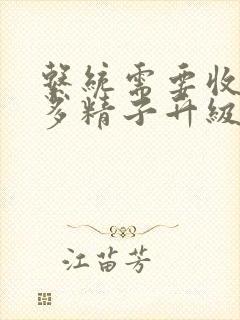 繫統需要收
多精子升級
江苗芳